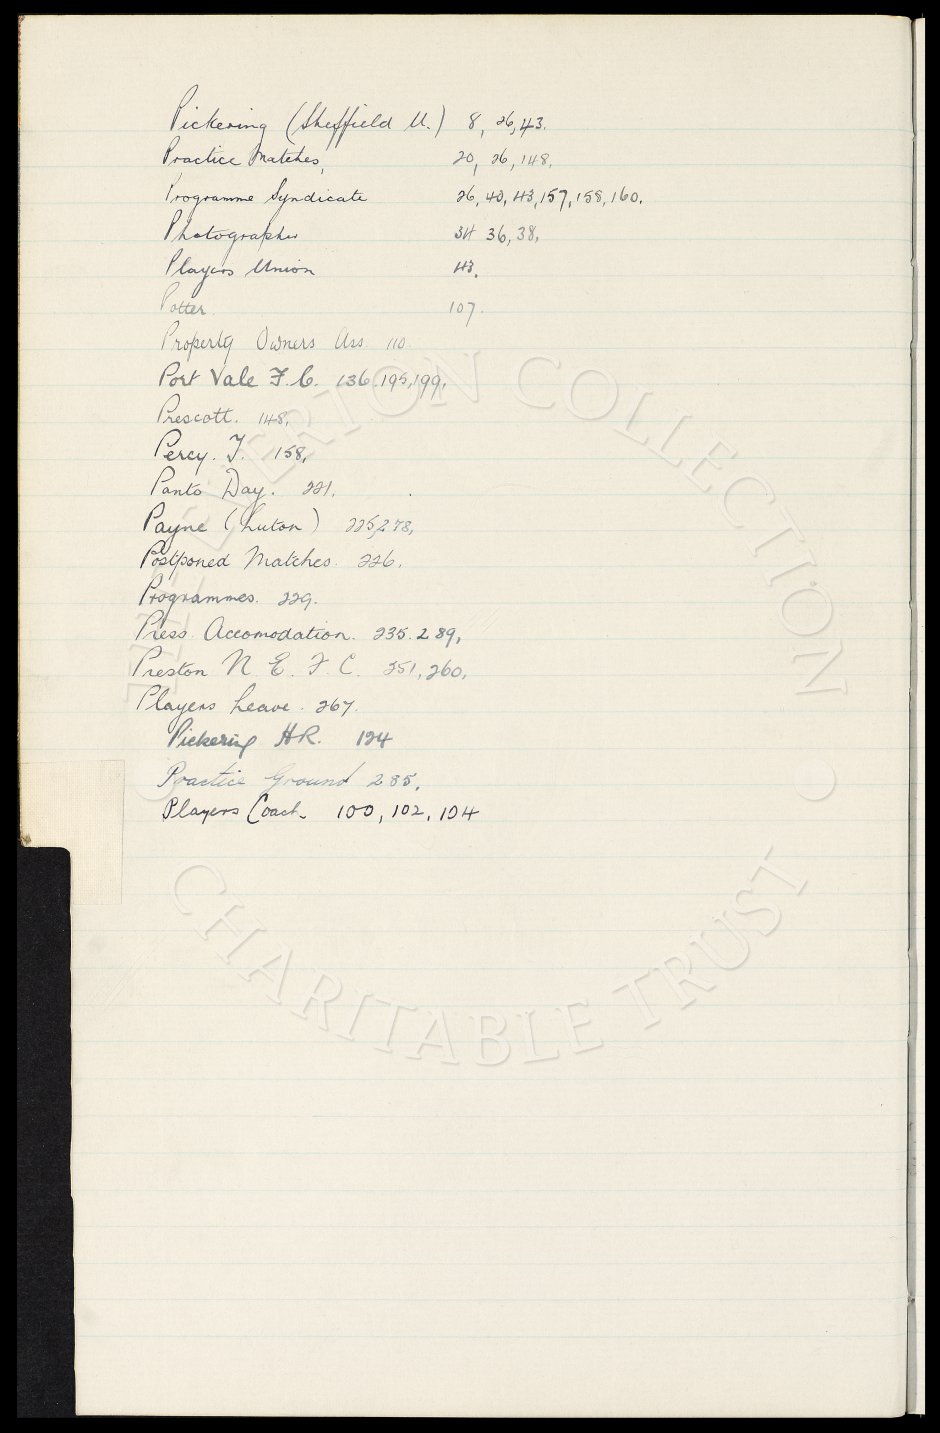 Pickering (Sheffield U.) 8, 26, 43.
Practice Matches, 20, 26, 148.
Programme Syndicate 26, 40, 43, 157, 158, 160.
Photographs 34 36, 38.
Players Union 43.
Potter. 107.
Property Owners Ass. 110.
Port Vale F.C. 136, 195, 199.
Prescott. 148.
Percy. J. 158,
Panto Day. 221.
Payne (Luton) 225, 278,
Postponed Matches. 226.
Programmes. 229.
Press Accomodation. 235. 289,
Preston N. E. F. C. 251, 260.
Players Leave. 267.
Pickering HR. 124
Practice Ground 285.
Players Coach. 100, 102, 104
THE EVERTON COLLECTION
CHARITABLE TRUST